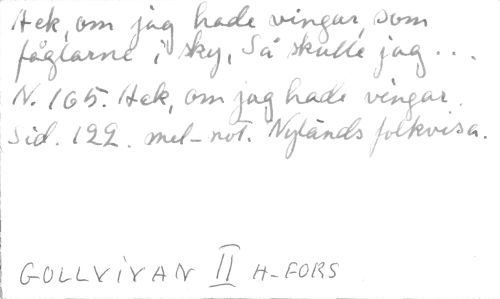 Hek, om jag hade vingar, som
fåglarne i sky, Så skulle jag...
N. 165. Hek, om jag hade vingar.
Sid. 122. mel-not. Nylands folkvisa.
GOLLVIVAN II H-FORS